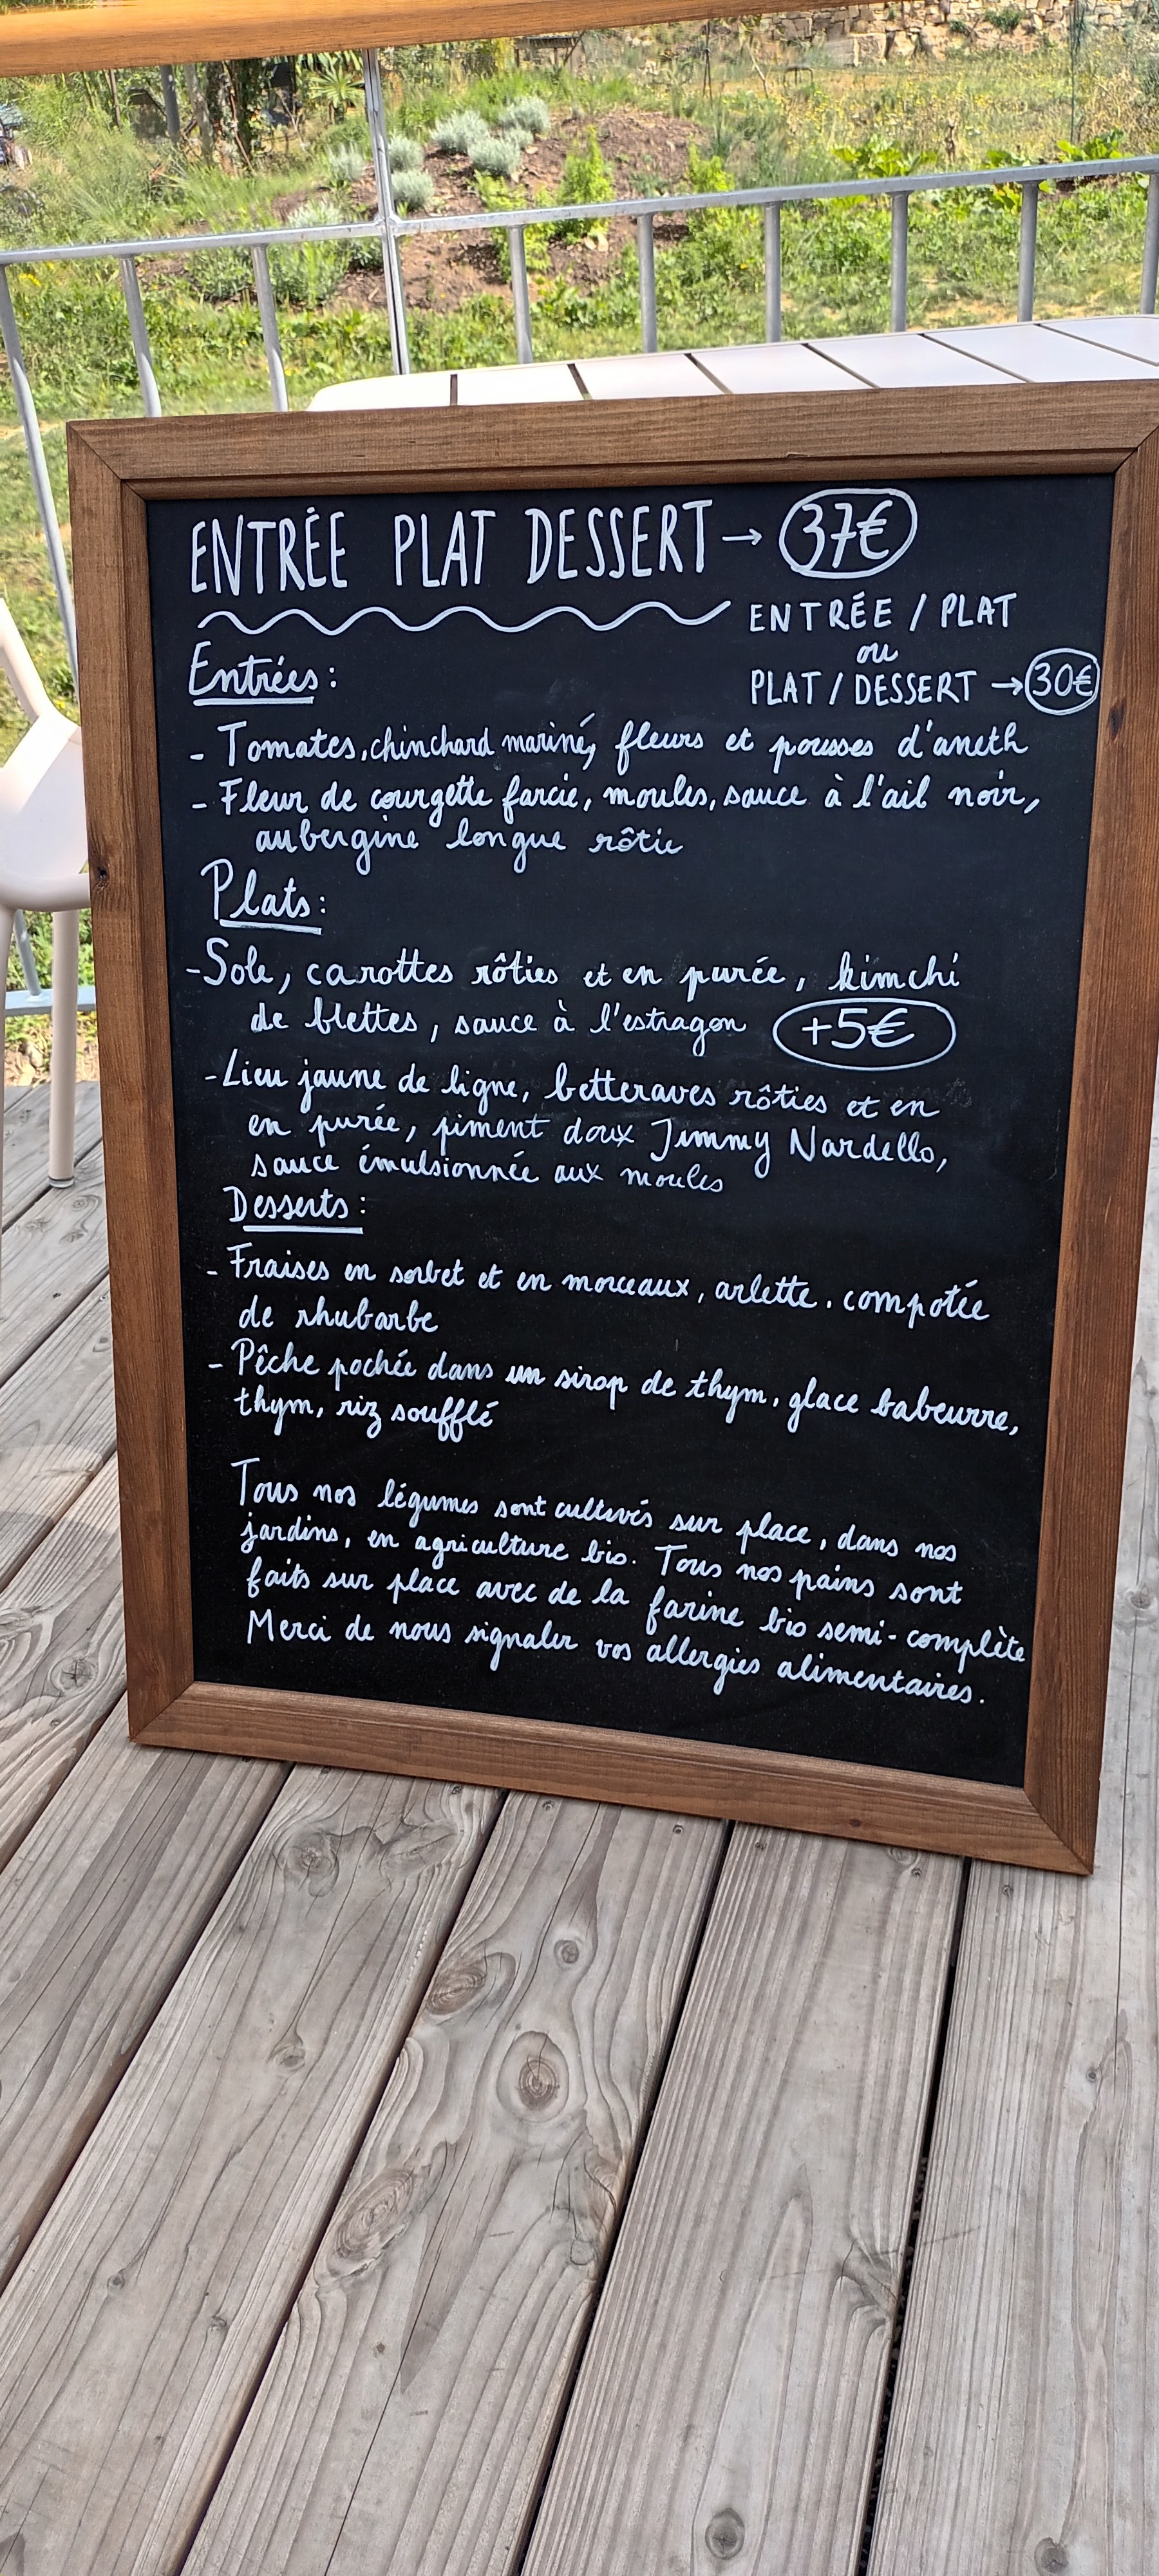 ENTRÉE PLAT DESSERT → 37€
ENTRÉE / PLAT
ou
PLAT / DESSERT → 30€
Entrées :
- Tomates, chinchard mariné, fleurs et pousses d'aneth
- Fleur de courgette farcie, moules, sauce à l'ail noir,
aubergine longue rôtie
Plats :
- Sole, carottes rôties et en purée, kimchi
de blettes, sauce à l'estragon +5€
- Lieu jaune de ligne, betteraves rôties et en
en purée, piment doux Jimmy Nardello,
sauce émulsionnée aux moules
Desserts :
- Fraises en sorbet et en morceaux, arlette, compotée
de rhubarbe
- Pêche pochée dans un sirop de thym, glace babeurre,
thym, riz soufflé
Tous nos légumes sont cultivés sur place, dans nos
jardins, en agriculture bio. Tous nos pains sont
faits sur place avec de la farine bio semi-complète
Merci de nous signaler vos allergies alimentaires.